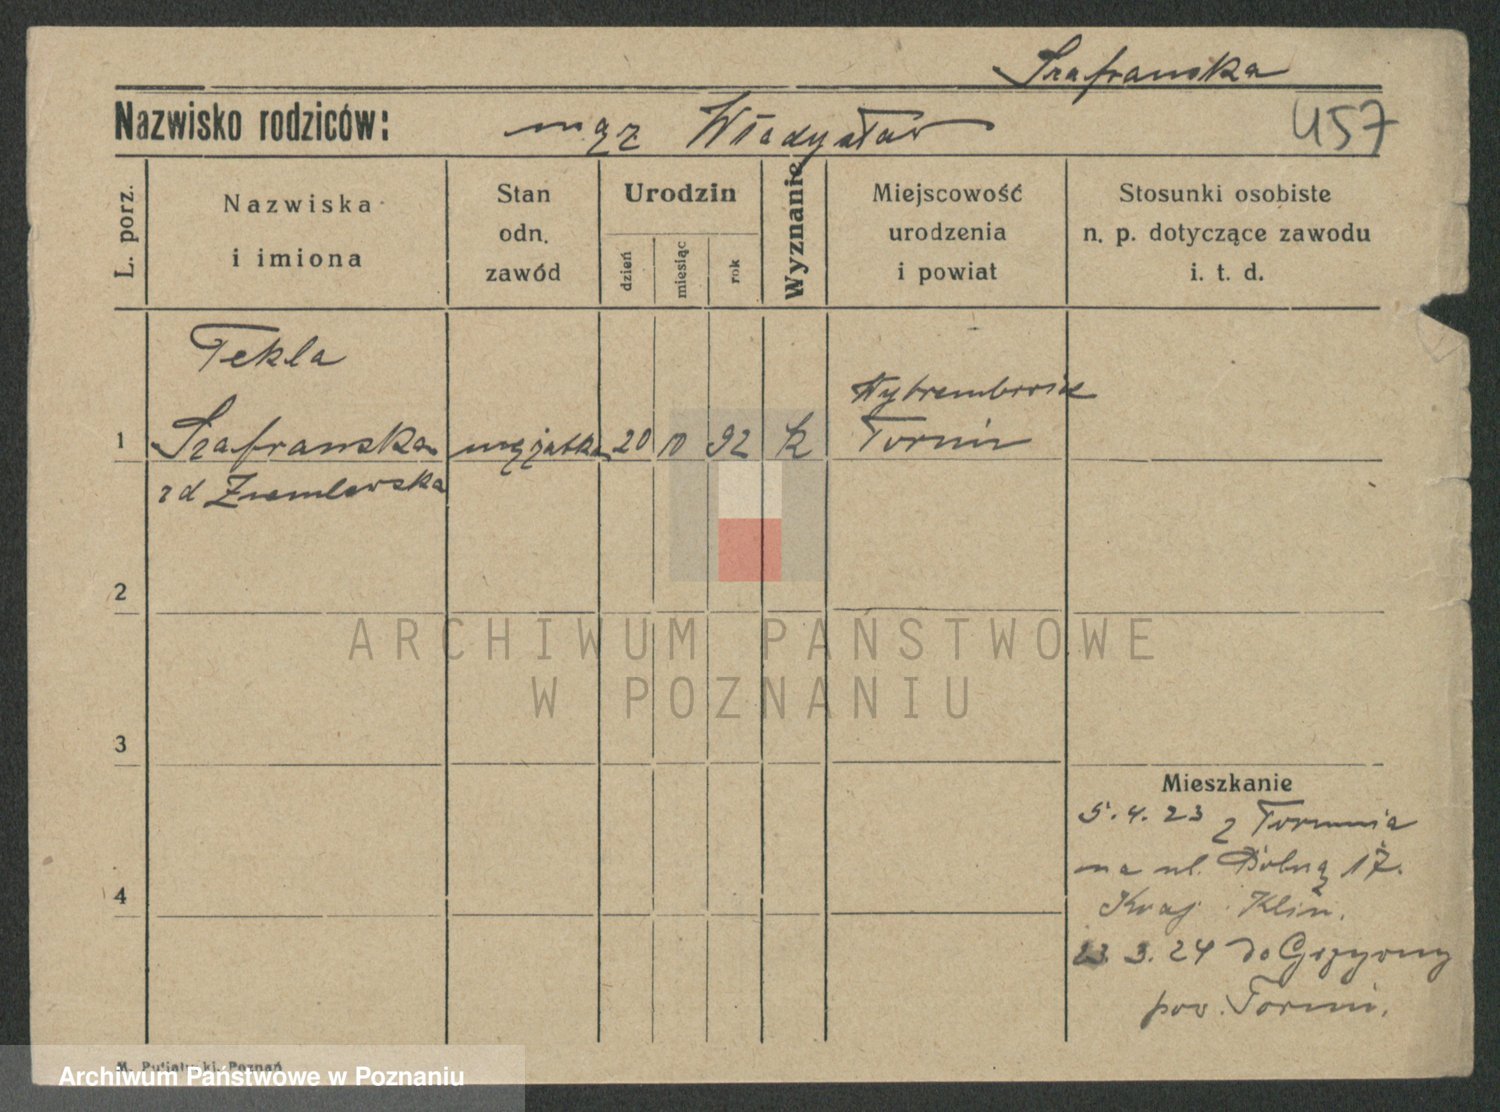 Szafranska
Nazwisko rodziców: mąz Władysław
457
L. porz.
Nazwiska i imiona
Stan odn. zawód
Urodzin
dzień
miesiąc
rok
Wyznanie
Miejscowość urodzenia i powiat
Stosunki osobiste n. p. dotyczące zawodu i. t. d.
Tekla
1 Szafranska mężatka 20 10 92 k
Torun
zd
2
3
4
Mieszkanie
5. 4. 23 z Torunia
na ul. Dolną 17.
Kraj
23 3. 24 do Grzywny
pow. Torun.
ARCHIWUM PAŃSTWOWE
W POZNANIU
Archiwum Państwowe w Poznaniu